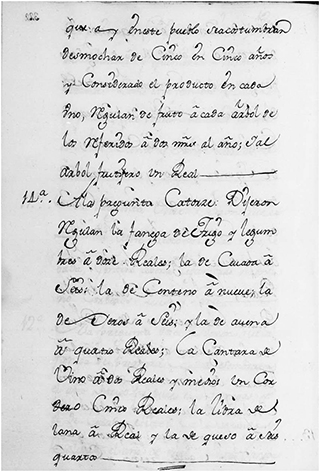 que ay en este pueblo se acostumbran
desmochar de Cinco en Cinco años
y Considerado el producto en cada
Uno, Regulan de fruto â cada ârbol de
los referidos â dos mrs al año; y al
Arbol frutifero un Real
14ª. A la pregunta Catorze Dijeron
Regulan la fanega de Trigo y legum
bres â doze Reales; la de Ceuada â
Seis; la de Centeno â nueve; la
de Yeros â Seis; y la de avena
â quatro Reales; La Cantara de
Vino â dos Reales y medio; un Cor
dero Cinco Reales; la libra de
lana â Real y la de queso â seis
quartos